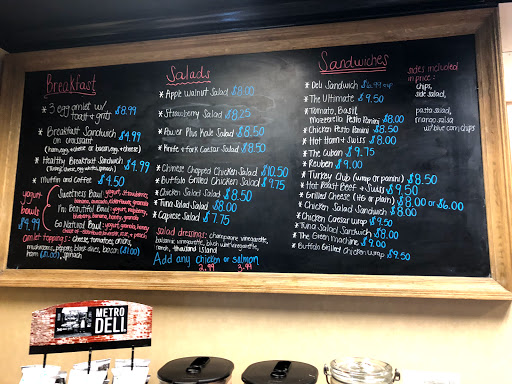 Breakfast
* 3 egg omlet w/
toast & grits $8.99
* Breakfast Sandwich $4.99
on croissant
(ham, egg & cheese or bacon, egg, & cheese)
* Healthy Breakfast Sandwich $4.99
(Turkey, cheese, egg whites, spinach)
* Muffin and Coffee $4.50
yogurt
bowls
$9.99
Sweetness Bowl: yogurt, strawberries,
banana, avocado, elderflower, granola
I'm Beautiful Bowl: yogurt, raspberry,
blueberry, banana, honey, granola
Go Natural Bowl: yogurt, granola, honey
omlet toppings: cheese, tomatoes, onions,
mushrooms, peppers, black olives, bacon ($1.00)
ham ($1.00), spinach
Salads
* Apple Walnut Salad $8.00
* Strawberry Salad $8.25
* Power Plus Kale Salad $8.50
* Knife & fork Caesar Salad $8.50
* Chinese Chopped Chicken Salad $10.50
* Buffalo Grilled Chicken Salad $9.75
* Chicken Salad Salad $8.50
* Tuna Salad Salad $8.00
* Caprese Salad $7.75
salad dressings: champagne vinegarette,
balsamic vinegarette, blush wine vinegarette,
ranch, thousand island
Add any chicken or salmon
2.99 3.99
Sandwiches
* Deli Sandwich $6.99
* The Ultimate $9.50
* Tomato, Basil
Mozzarella Pesto Panini $8.00
* Chicken Pesto Panini $8.50
* Hot Ham & Swiss $8.00
* The Cuban $9.75
* Reuben $9.00
* Turkey Club (wrap or panini) $8.50
* Hot Roast Beef & Swiss $9.50
* Grilled Cheese (+6 or plain) $8.00 or $6.00
* Chicken Salad Sandwich $8.00
* Chicken Caesar Wrap $9.50
* Tuna Salad Sandwich $8.00
* The Green Machine $9.00
* Buffalo Grilled Chicken Wrap $9.50
sides included
in price:
chips,
side salad,
pasta salad,
mango salsa
w/ blue corn chips
METRO
DELI